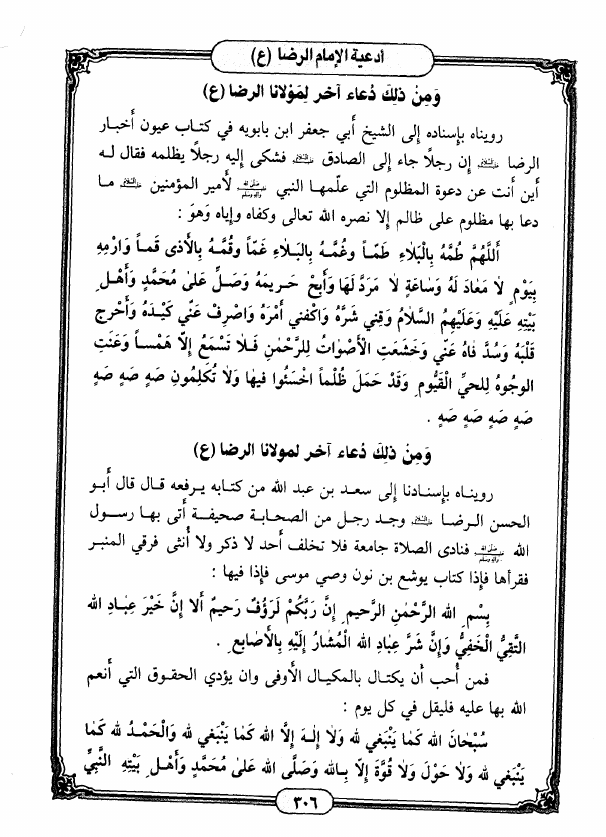 أدعية الإمام الرضا (ع)
وَمِنْ ذلِكَ دُعاء آخر لِمَوْلانا الرضا (ع)
رويناه بإسناده إلى الشيخ أبي جعفر ابن بابويه في كتاب عيون أخبار
الرضا عليه السلام إن رجلاً جاء إلى الصادق عليه السلام فشكى إليه رجلاً يظلمه فقال له
أين أنت عن دعوة المظلوم التي علّمها النبي صلى الله عليه وآله وسلم لأمير المؤمنين عليه السلام ما
دعا بها مظلوم على ظالم إلا نصره الله تعالى وكفاه وإياه وَهوَ :
أَللَّهُمَّ طُمَّهُ بِالْبَلاءِ طَمّاً وغُمَّهُ بِالبَلاءِ غَمّاً وقُمَّهُ بِالأذى قَماً وَارْمِهِ
بِيَوْمٍ لا مَعادَ لَهُ وَساعَةٍ لا مَرَدَّ لَها وَأبِحْ حَريمَهُ وَصَلِّ عَلىٰ مُحَمَّدٍ وَأهْلِ
بَيْتِهِ عَلَيْهِ وَعَلَيْهِمُ السَّلامُ وَقِني شَرَّهُ وَاكْفني أمْرَهُ وَاصْرِفْ عَنّي كَيْدَهُ وَأحْرِجْ
قَلْبَهُ وَسُدَّ فاهُ عَنّي وَخَشَعَتِ الأصْواتُ لِلرَّحْمٰنِ فَلا تَسْمَعُ إلّا هَمْساً وَعَنَتِ
الوجُوهُ لِلحيِّ القَيُّومِ وَقَدْ حَمَلَ ظُلْماً اخْسَئُوا فيها وَلا تُكَلِمُونِ صَهٍ صَهٍ صَهٍ
صَهٍ صَهٍ صَهٍ صَهٍ .
وَمِنْ ذلِكَ دُعاء آخر لمولانا الرضا (ع)
رويناه بإسنادنا إلى سعد بن عبد الله من كتابه يرفعه قال قال أبو
الحسن الرضا عليه السلام وجد رجل من الصحابة صحيفة أتى بها رسول
الله صلى الله عليه وآله وسلم فنادى الصلاة جامعة فلا تخلف أحد لا ذكر ولا أنثى فرقي المنبر
فقرأها فإذا كتاب يوشع بن نون وصي موسى فإذا فيها :
بِسْمِ الله الرَّحْمٰنِ الرَّحيمِ إنَّ رَبَّكُمْ لَرَؤُفٌ رَحيمٌ ألا إنَّ خَيْرَ عِبادِ الله
التَّقِيُّ الْخَفِيُّ وَإنَّ شَرَّ عِبادِ الله الْمُشارُ إلَيْهِ بِالأَصَابِعِ .
فمن أحب أن يكتال بالمكيال الأوفى وان يؤدي الحقوق التي أنعم
الله بها عليه فليقل في كل يوم :
سُبْحانَ الله كَما يَنْبَغي لله وَلا إلٰهَ إلّا الله كَما يَنْبَغي لله وَالْحَمْدُ لله كَما
يَنْبَغي لله وَلا حَوْلَ وَلا قُوَّةَ إلّا بِالله وَصَلَّى الله عَلىٰ مُحَمَّدٍ وَأهْلِ بَيْتِهِ النَّبيِّ
٣٠٦